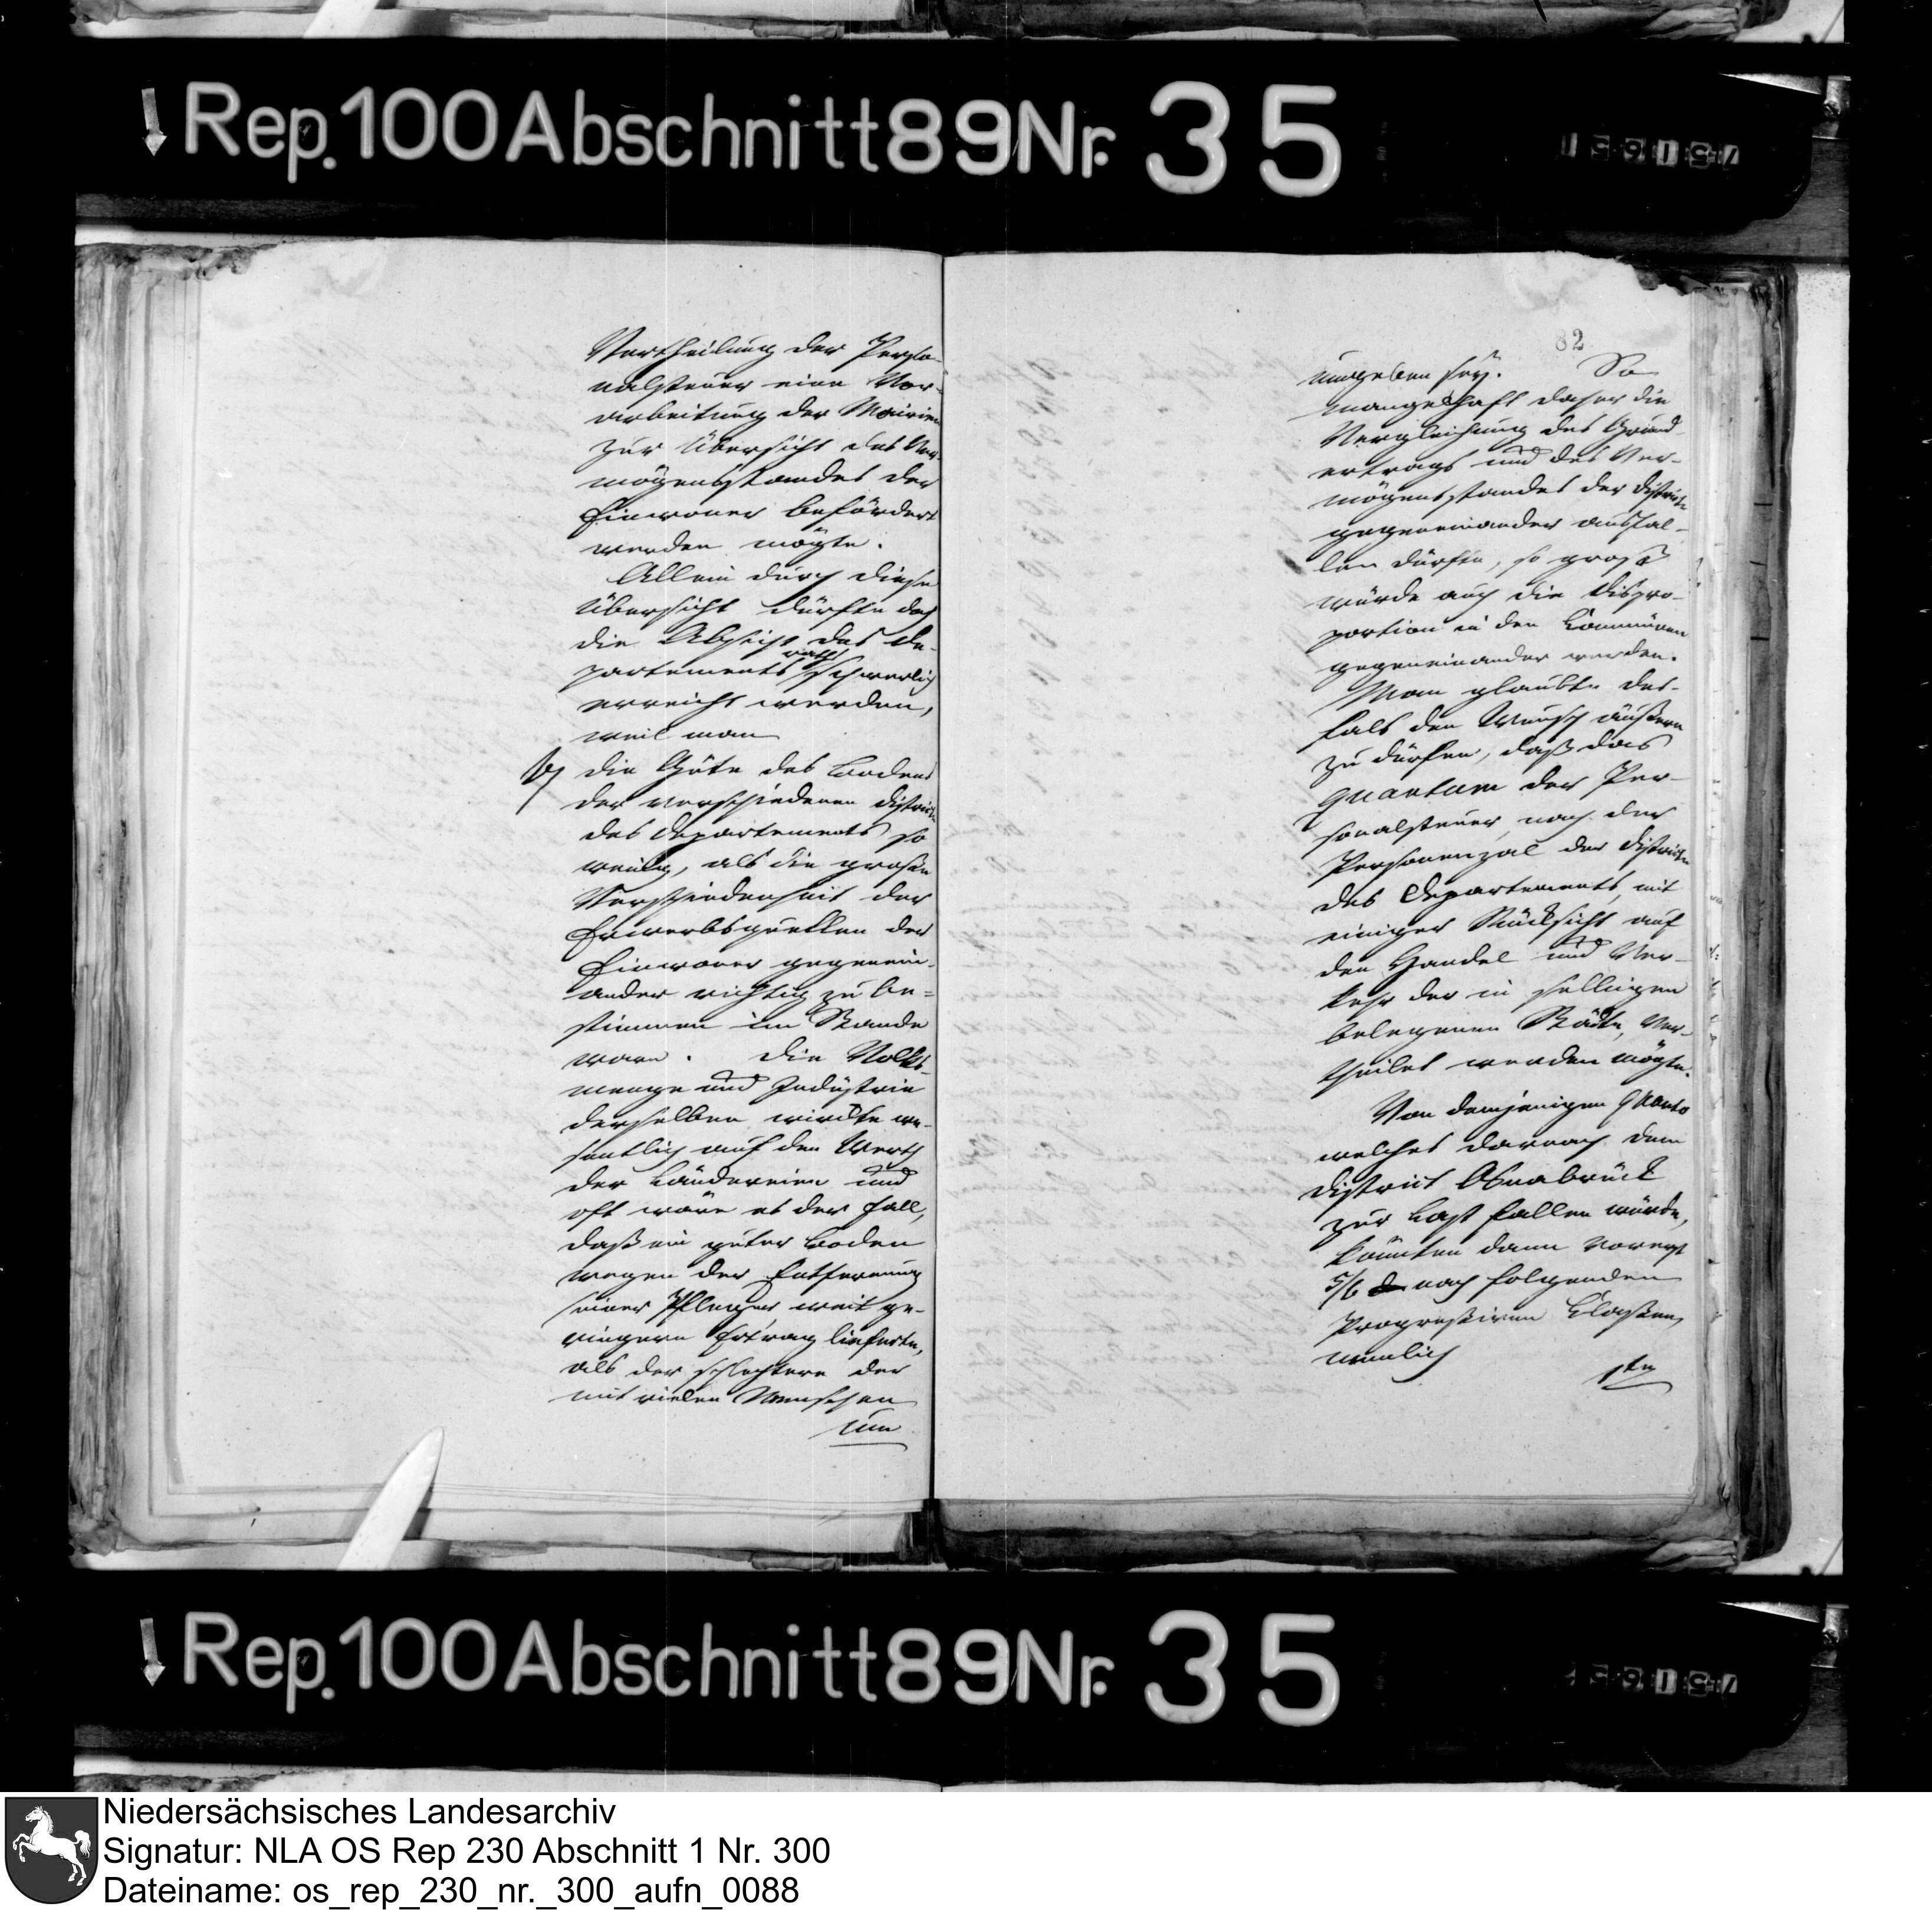 Rep. 100 Abschnitt 89 Nr. 35
Vertheilung der Perso-
nalsteuer eine Vor-
arbeitung der Mairien
zur Übersicht des Ver-
mögensstandes der
Einwoner befördert
werden mögte.
Allein durch diese
Übersicht dürfte doch
die Absicht des De-
partements rath schwerlich
erreicht werden,
weil man
b) die Güte des Bodens
der verschiedenen Districte
des Departements so
wenig, als die große
Verschiedenheit der
Erwerbsquellen der
Einwoner gegenein-
ander richtig zu be=
stimmen im Stande
ware. Die Volks-
menge und Industrie
derselben wirckte we-
sentlich auf den Werth
der Ländereien und
oft wäre es der Fall,
daß ein guter Boden
wegen der Entfernung
seiner Pfleger weit ge-
ringern Ertrag lieferte,
als der schlechtere der
mit vielen Menschen
um
82
umgeben sey. So
mangelhaft daher die
Vergleichung des Grund-
ertrags und des Ver-
mögensstandes der Districte
gegeneinander ausfal-
len dürfte, so groß
würde auch die Dispro-
portion in den Communen
gegeneinander werden.
Man glaubte des-
fals den Wunsch äußern
zu dürfen, daß das
Quantum der Per-
sonalsteuer nach der
Personenzal der Districte
des Departements, mit
einiger Rücksicht auf
den Handel und Ver-
kehr der in selbigen
belegenen Städte, ver-
theilet werden mögte.
Von demjenigen Quanto
welches darnach dem
District Osnabrück
zur Last fallen würde,
könnten dann vorerst
5/6 nach folgenden
Progressiven Classen,
nemlich
1te
Rep. 100 Abschnitt 89 Nr. 35
Niedersächsisches Landesarchiv
Signatur: NLA OS Rep 230 Abschnitt 1 Nr. 300
Dateiname: os_rep_230_nr._300_aufn_0088